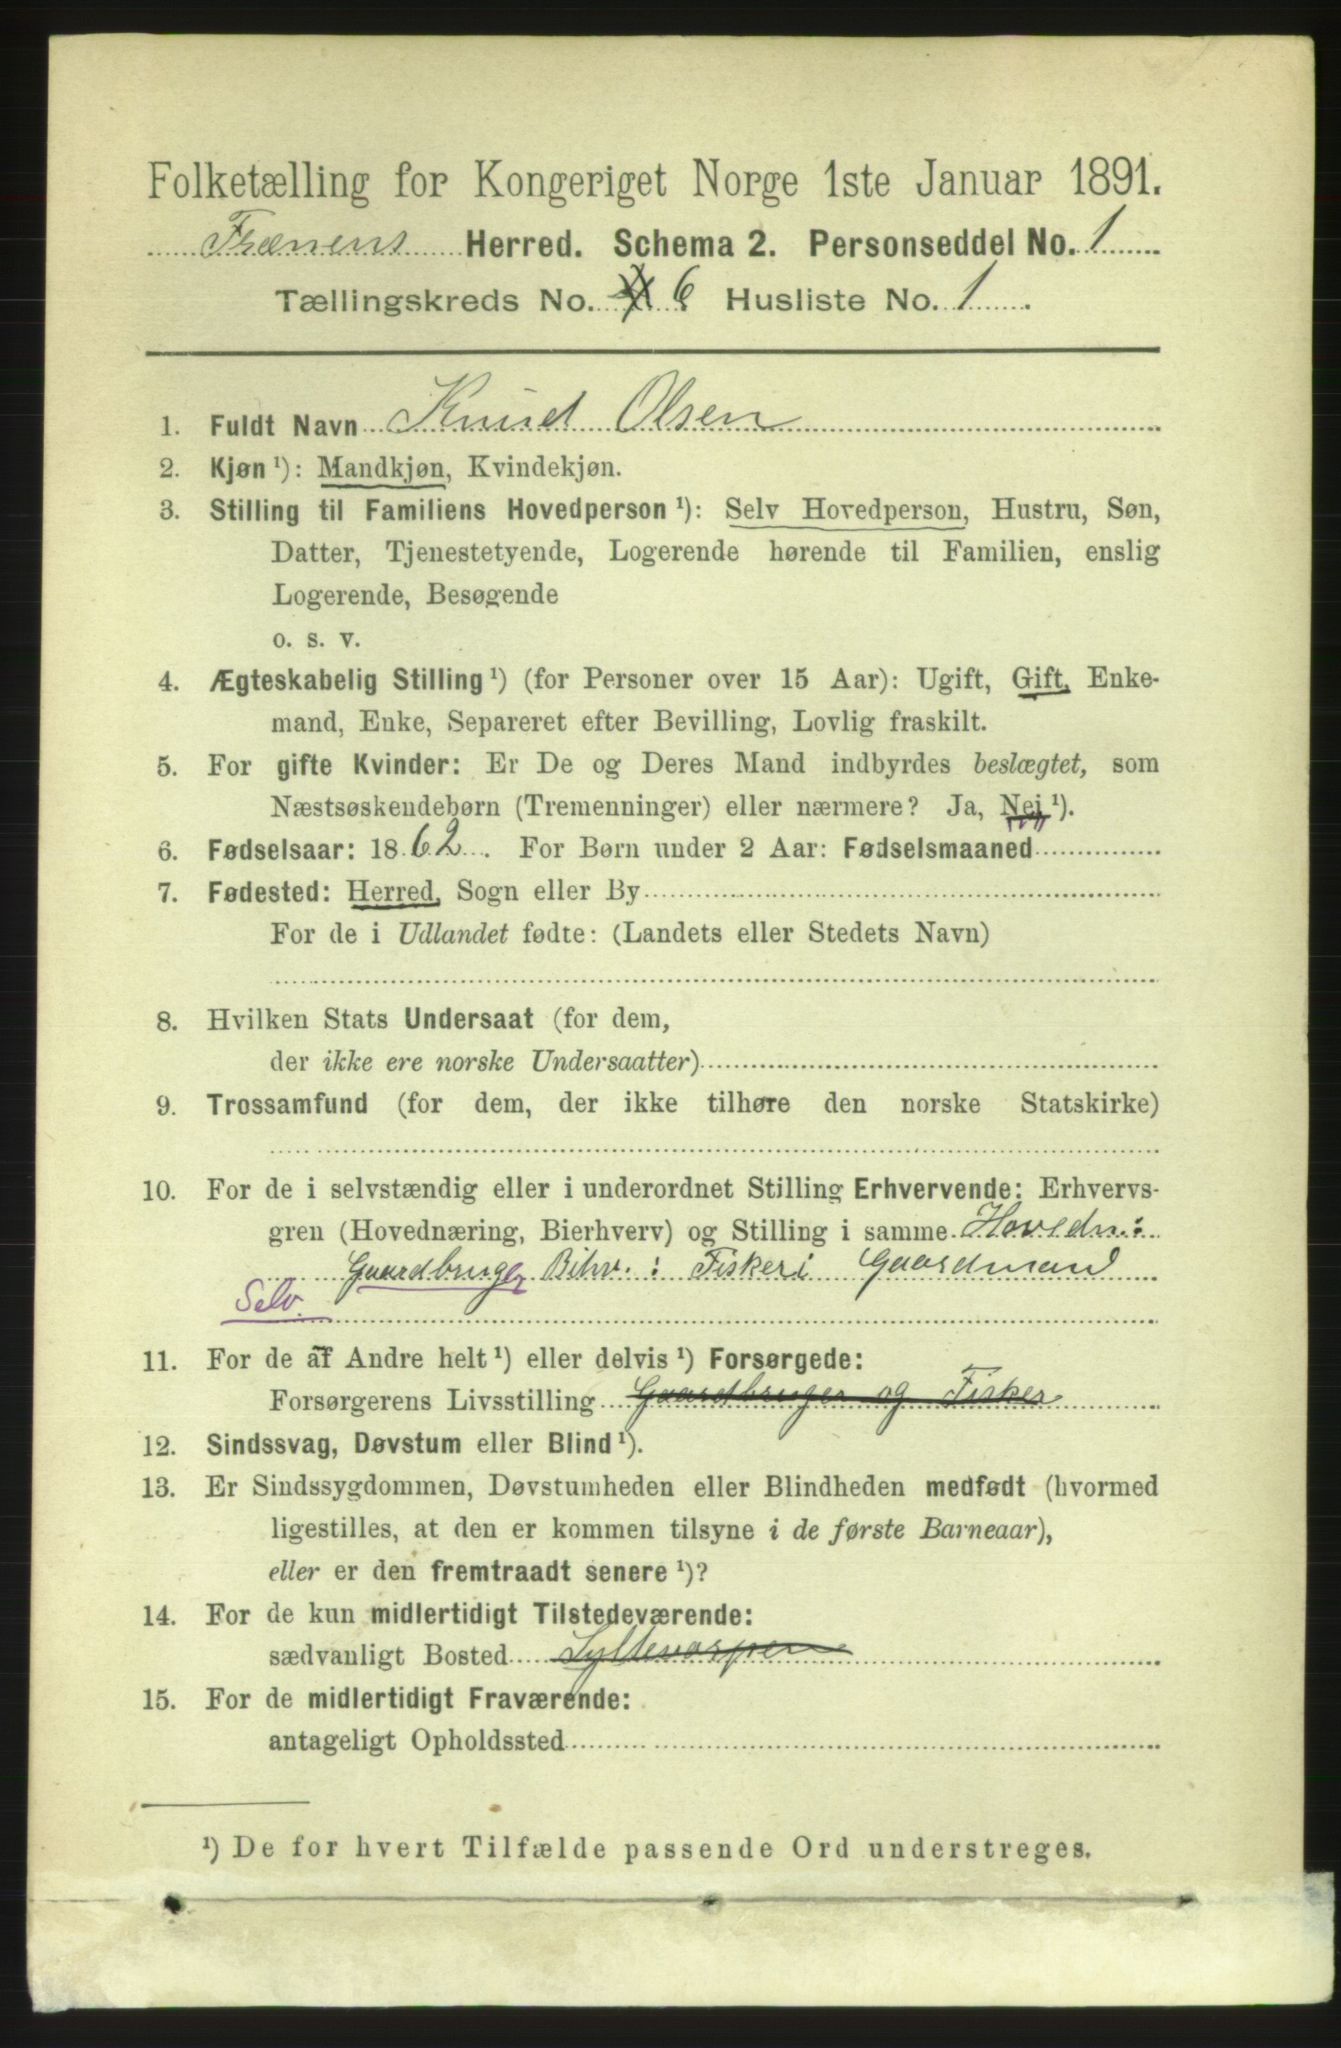 Folketælling for Kongeriget Norge 1ste Januar 1891.
Frænens Herred. Schema 2. Personseddel No. 1
Tællingskreds No. 6 Husliste No. 1.
1. Fuldt Navn Knud Olsen
2. Kjøn ¹): Mandkjøn, Kvindekjøn.
3. Stilling til Familiens Hovedperson ¹): Selv Hovedperson, Hustru, Søn,
Datter, Tjenestetyende, Logerende hørende til Familien, enslig
Logerende, Besøgende
o. s. v.
4. Ægteskabelig Stilling ¹) (for Personer over 15 Aar): Ugift, Gift, Enke-
mand, Enke, Separeret efter Bevilling, Lovlig fraskilt.
5. For gifte Kvinder: Er De og Deres Mand indbyrdes beslægtet, som
Næstsøskendebørn (Tremenninger) eller nærmere? Ja, Nei ¹).
6. Fødselsaar: 1862. For Børn under 2 Aar: Fødselsmaaned
7. Fødested: Herred, Sogn eller By
For de i Udlandet fødte: (Landets eller Stedets Navn)
8. Hvilken Stats Undersaat (for dem,
der ikke ere norske Undersaatter)
9. Trossamfund (for dem, der ikke tilhøre den norske Statskirke)
10. For de i selvstændig eller i underordnet Stilling Erhvervende: Erhvervs-
gren (Hovednæring, Bierhverv) og Stilling i samme Hovedn.:
Gaardbruger Bihv.: Fiskeri Gaardmand
Selv.
11. For de af Andre helt ¹) eller delvis ¹) Forsørgede:
Forsørgerens Livsstilling Gaardbruger og Fisker
12. Sindssvag, Døvstum eller Blind ¹).
13. Er Sindssygdommen, Døvstumheden eller Blindheden medfødt (hvormed
ligestilles, at den er kommen tilsyne i de første Barneaar),
eller er den fremtraadt senere ¹)?
14. For de kun midlertidigt Tilstedeværende:
sædvanligt Bosted
15. For de midlertidigt Fraværende:
antageligt Opholdssted
¹) De for hvert Tilfælde passende Ord understreges.